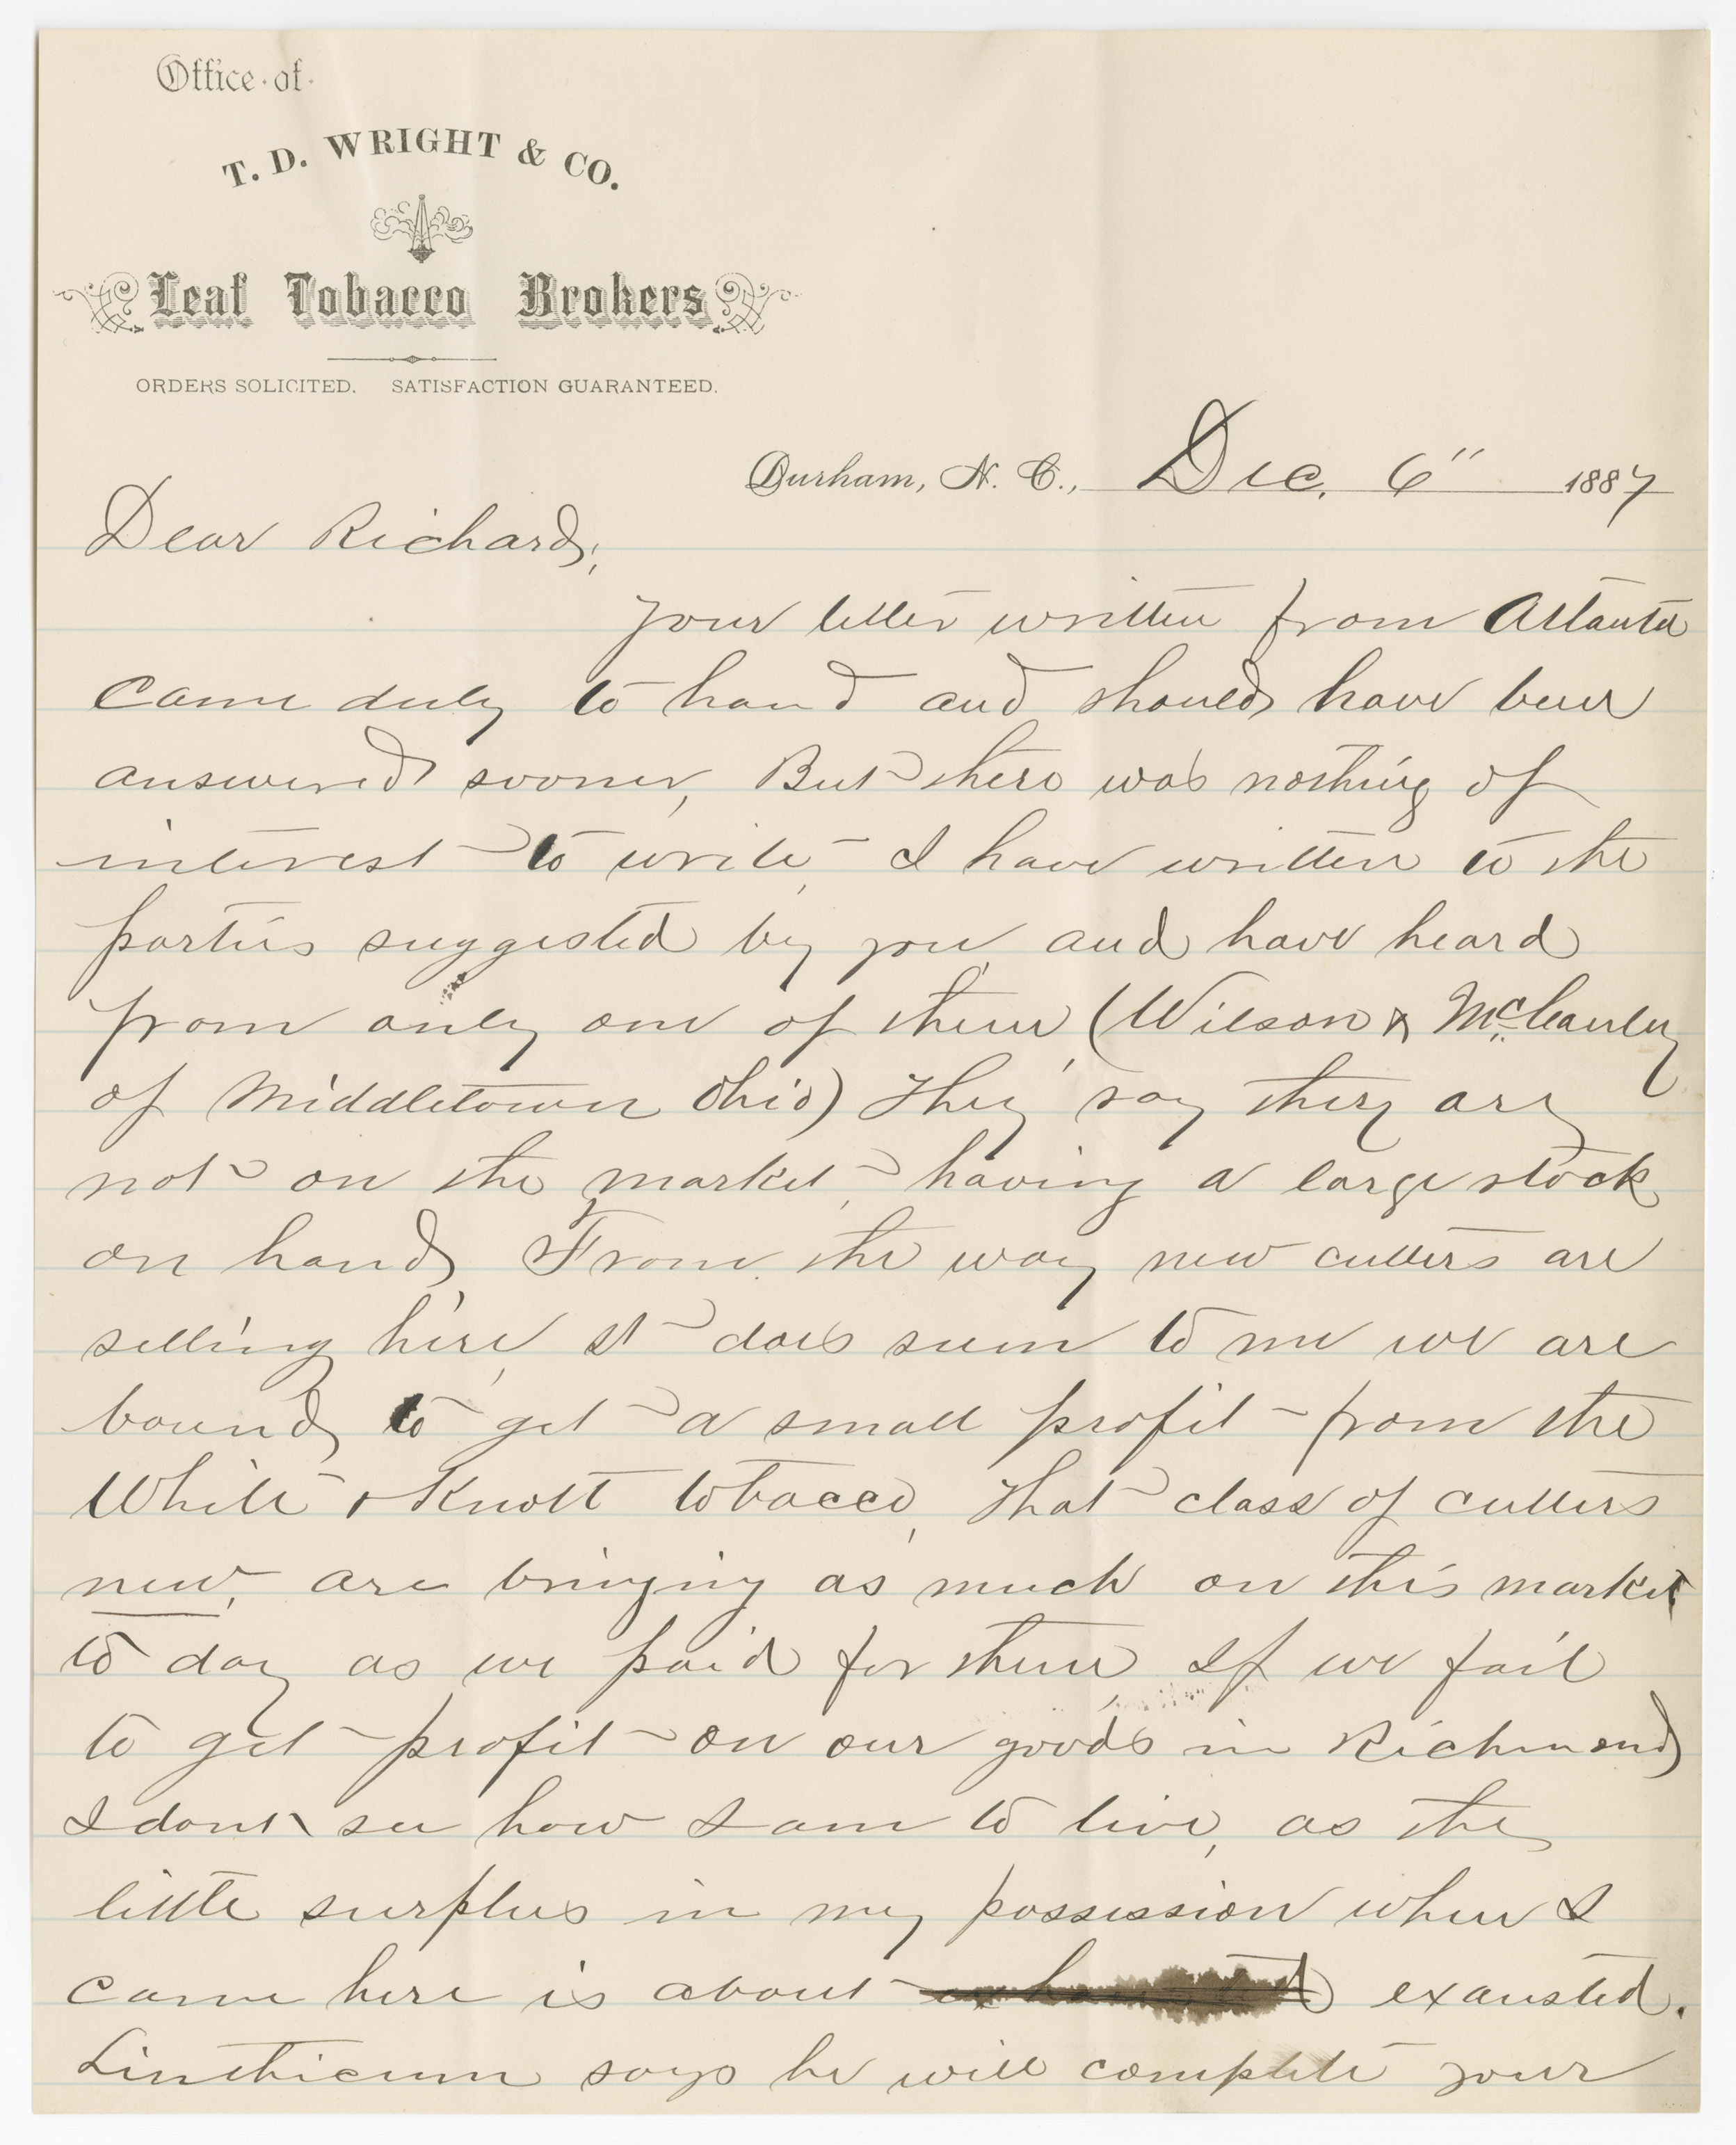 Office of
T. D. WRIGHT & CO.
Leaf Tobacco Brokers
ORDERS SOLICITED. SATISFACTION GUARANTEED.
Durham, N. C., Dec. 6" 1887
Dear Richard,
your letter written from Atlanta
came duly to hand and should have been
answered sooner, But there was nothing of
interest to write, I have written to the
parties suggested by you, and have heard
from only one of them, (Wilson & McCauley
of Middletown Ohio) They say they are
not on the market, having a large stock
on hand, From the way new cutters are
selling here, it does seem to me we are
bound to get a small profit from the
White & Knott tobacco, That class of cutters
new, are bringing as much on this market
to day as we paid for them, If we fail
to get profit on our goods in Richmond
I dont see how I am to live, as the
little surplus in my possession when I
came here is about exhausted exausted.
Linthicum says he will complete your